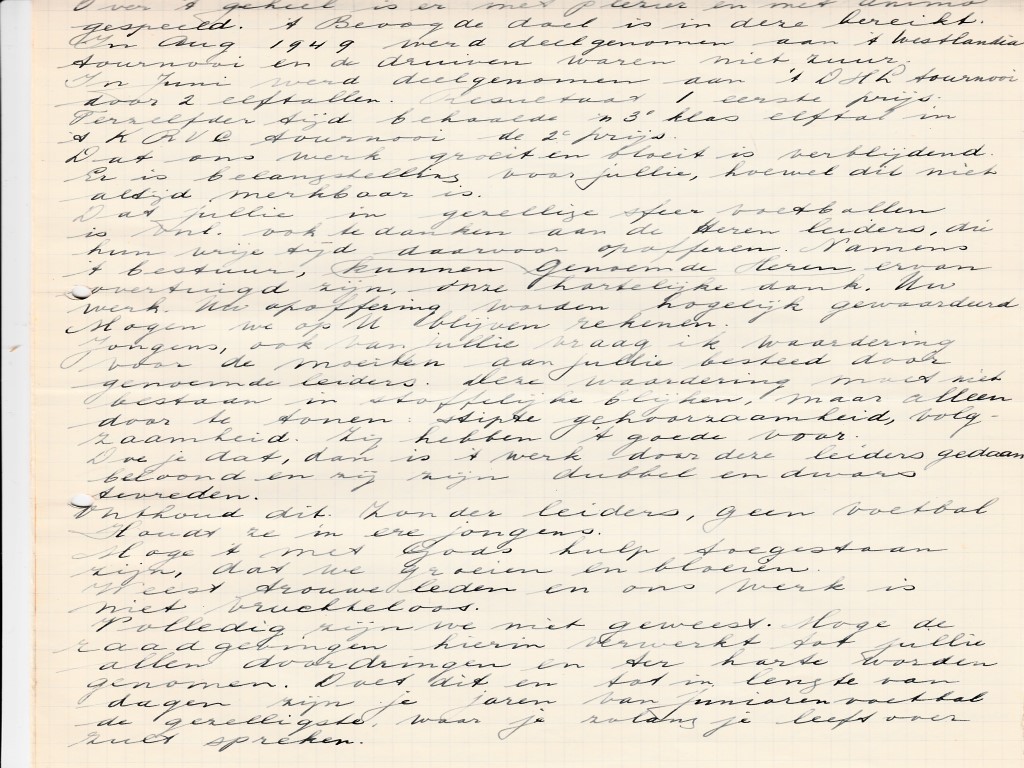 Over 't geheel is er met plezier en met animo
gespeeld. 't Beoogde doel is in deze bereikt.
In Aug 1949 werd deelgenomen aan 't Westlandia
tournooi en de druiven waren niet zuur.
In Juni werd deelgenomen aan 't D.H.L tournooi
door 2 elftallen. Resultaat 1 eerste prijs.
Terzelfder tijd behaalde 'n 3e klas elftal in
't K R V C tournooi de 2e prijs.
Dat ons werk groeit en bloeit is verblijdend.
Er is belangstelling voor jullie, hoewel dit niet
altijd merkbaar is.
Dat jullie in gezellige sfeer voetballen
is ook te danken aan de Heren leiders, die
hun vrije tijd daarvoor opofferen. Namens
't bestuur, kunnen genoemde Heren ervan
overtuigd zijn, onze hartelijke dank. Uw
werk. Uw opoffering worden hogelijk gewaardeerd
Mogen we op U blijven rekenen.
Jongens, ook van jullie vraag ik waardering
voor de moeiten aan jullie besteed door
genoemde leiders. Deze waardering moet niet
bestaan in stoffelijke blijken, maar alleen
door te tonen: stipte gehoorzaamheid, volg-
zaamheid. Zij hebben 't goede voor.
Doe je dat, dan is 't werk door deze leiders gedaan
beloond en zij zijn dubbel en dwars
tevreden.
Onthoud dit. Zonder leiders, geen voetbal
Houdt ze in ere jongens.
Moge 't met Gods hulp toegestaan
zijn, dat we groeien en bloeien.
Weest trouwe leden en ons werk is
niet vruchteloos.
Volledig zijn we niet geweest. Moge de
raadgevingen hierin verwerkt tot jullie
allen doordringen en ter harte worden
genomen. Doet dit en tot in lengte van
dagen zijn je jaren van juniorenvoetbal
de gezelligste, waar je zolang je leeft over
zult spreken.